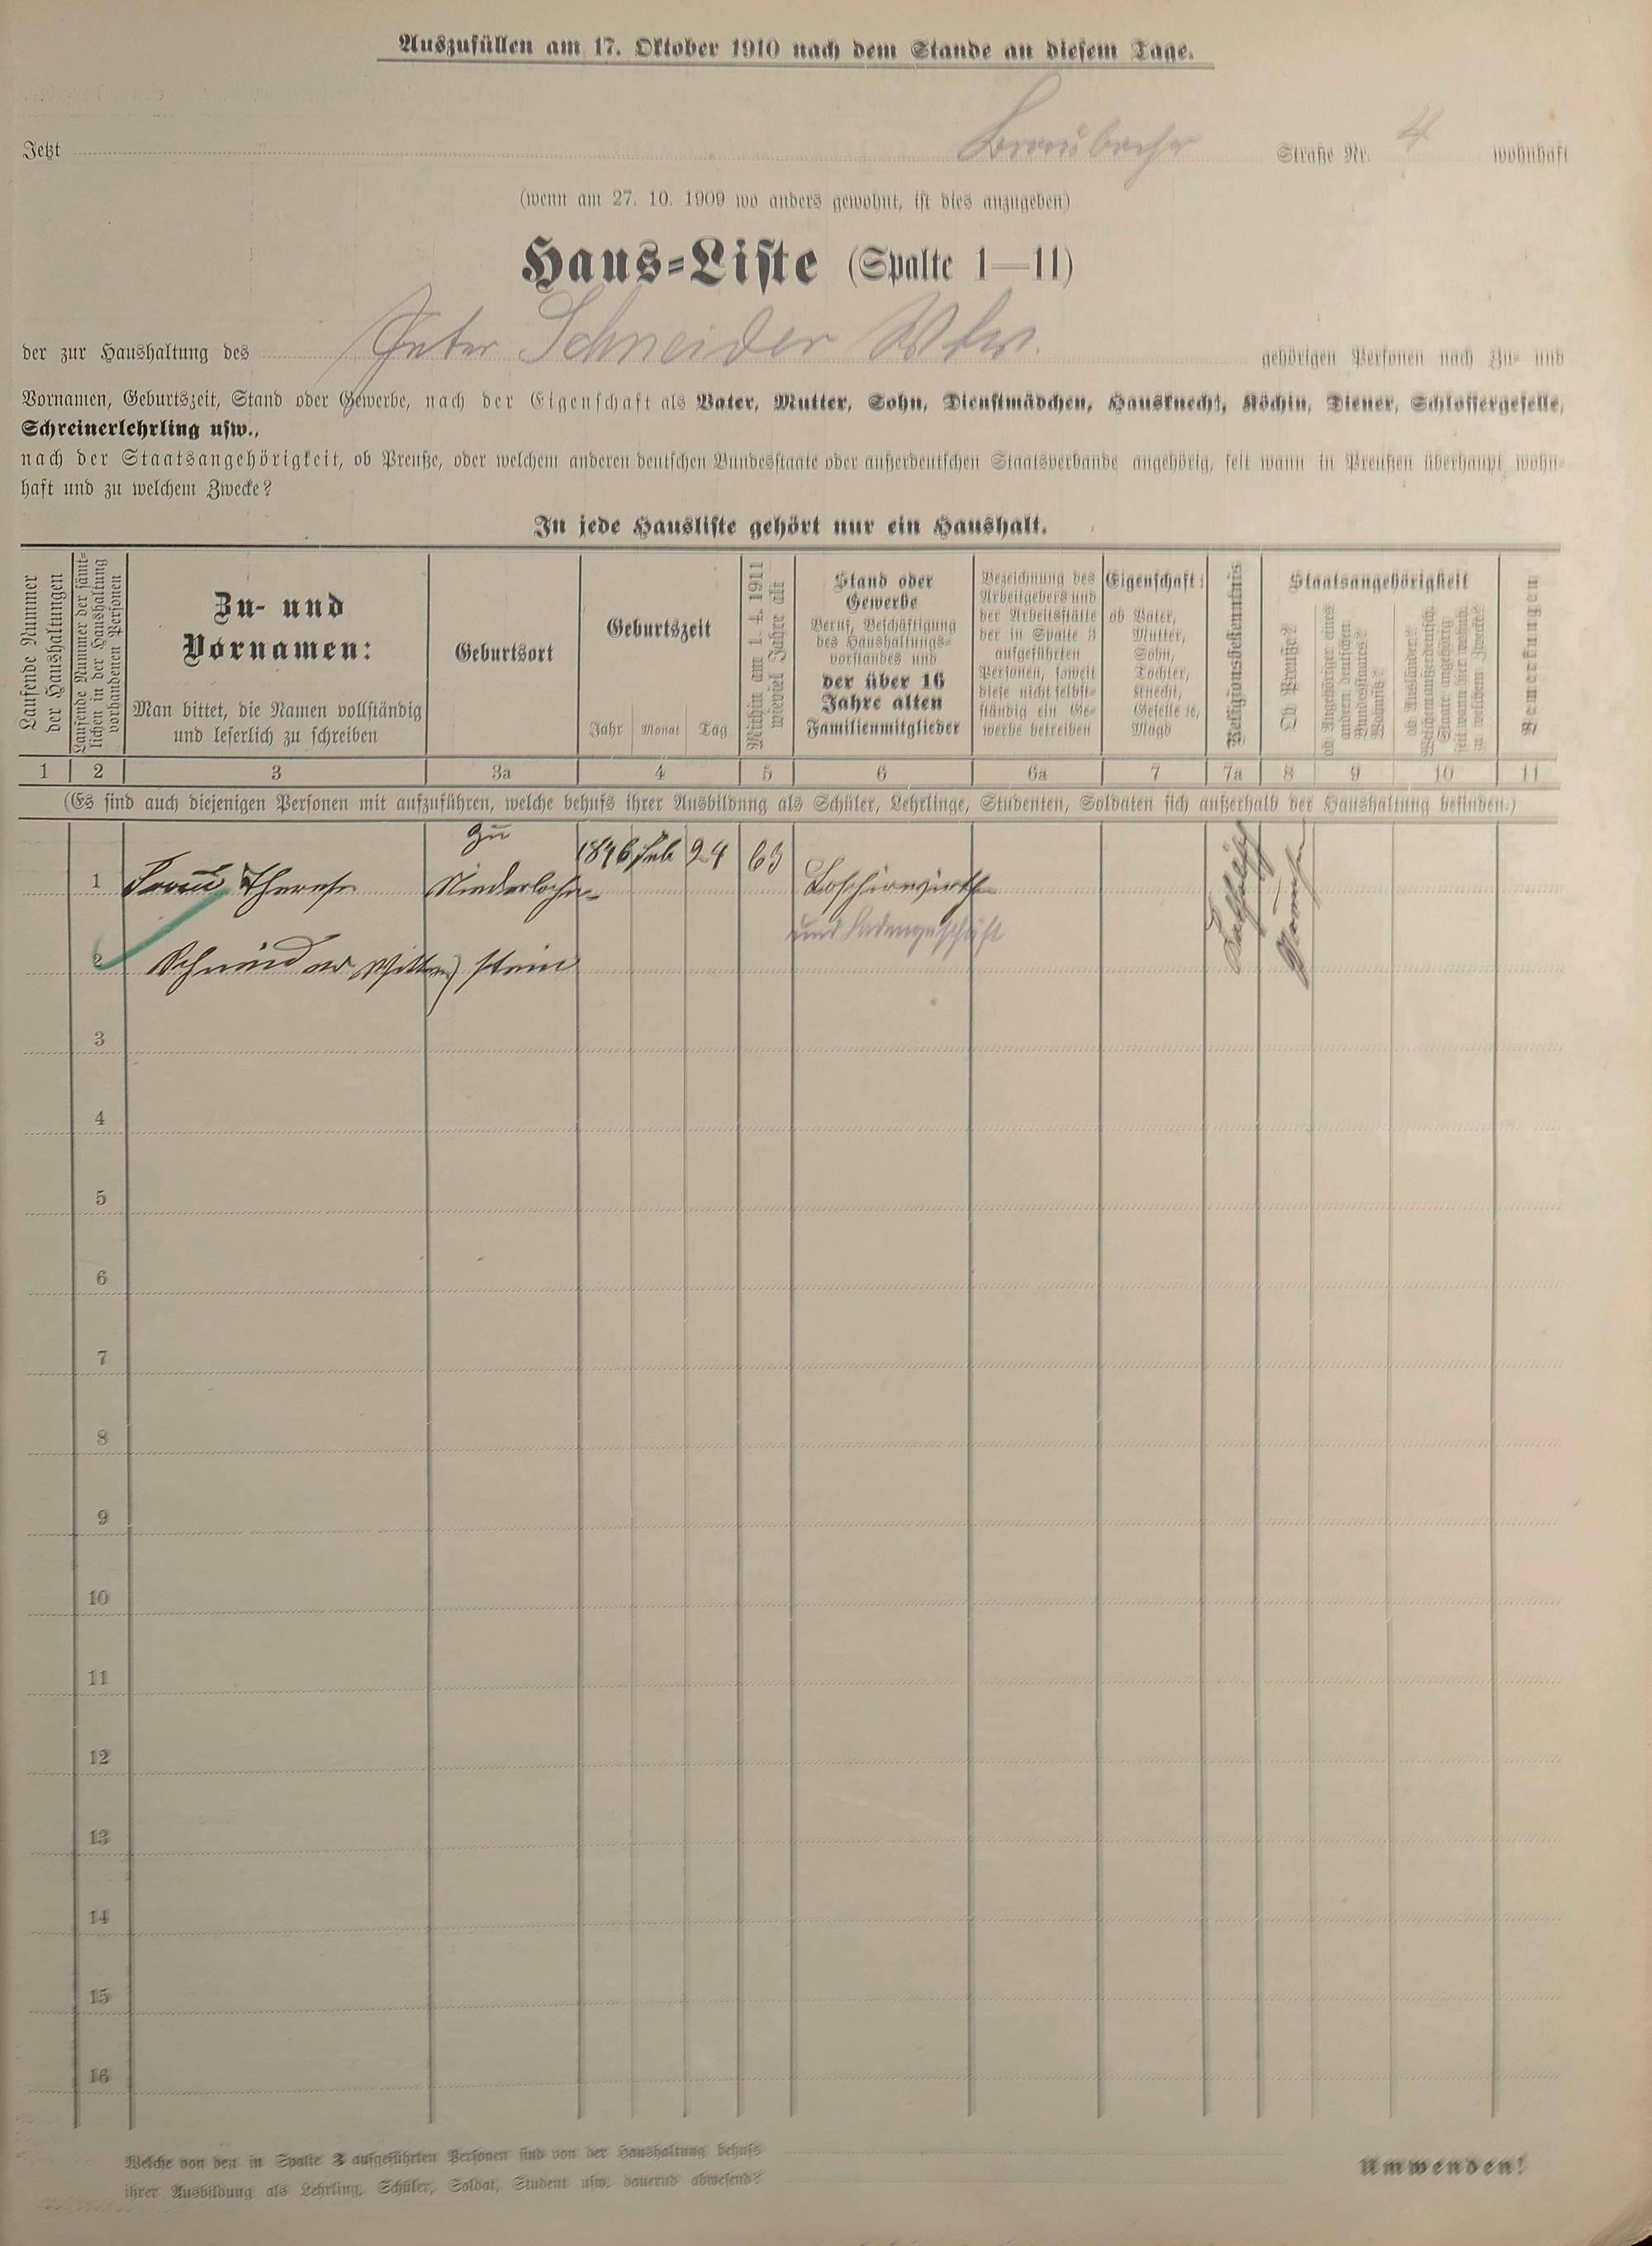 Auszufüllen am 17. Oktober 1910 nach dem Stande an diesem Tage.
Jetzt Braubacher Straße Nr. 4 wohnhaft
(wenn am 27. 10. 1909 wo anders gewohnt, ist dies anzugeben)
Haus-Liste (Spalte 1—11)
der zur Haushaltung des Peter Schneider Wtw. gehörigen Personen nach Zu- und
Vornamen, Geburtszeit, Stand oder Gewerbe, nach der Eigenschaft als Vater, Mutter, Sohn, Dienstmädchen, Hausknecht, Köchin, Diener, Schlossergeselle,
Schreinerlehrling usw.,
nach der Staatsangehörigkeit, ob Preuße, oder welchem anderen deutschen Bundesstaate oder außerdeutschen Staatsverbande angehörig, seit wann in Preußen überhaupt wohn-
haft und zu welchem Zwecke?
In jede Hausliste gehört nur ein Haushalt.
Laufende Nummer
der Haushaltungen
Laufende Nummer der sämt-
lichen in der Haushaltung
vorhandenen Personen
Zu- und
Vornamen:
Man bittet, die Namen vollständig
und leserlich zu schreiben
Geburtsort
Geburtszeit
Jahr Monat Tag
Mithin am 1. 4. 1911
wieviel Jahre alt
Stand oder
Gewerbe
Beruf, Beschäftigung
des Haushaltungs-
vorstandes und
der über 16
Jahre alten
Familienmitglieder
Bezeichnung des
Arbeitgebers und
der Arbeitsstätte
der in Spalte 3
aufgeführten
Personen, soweit
diese nicht selbst-
ständig ein Ge-
werbe betreiben
Eigenschaft:
ob Vater,
Mutter,
Sohn,
Tochter,
Knecht,
Geselle ꝛc,
Magd
Religionsbekenntnis
Staatsangehörigkeit
Ob Preuße?
ob Angehöriger eines
andern deutschen
Bundesstaates?
ob Ausländer?
Welchem außerdeutsch.
Staate angehörig
seit wann hier wohnh.
zu welchem Zwecke?
Bemerkungen
1 2 3 3a 4 5 6 6a 7 7a 8 9 10 11
(Es sind auch diejenigen Personen mit aufzuführen, welche behufs ihrer Ausbildung als Schüler, Lehrlinge, Studenten, Soldaten sich außerhalb der Haushaltung befinden.)
zu
1 Frau Therese Niederlahn- 1846 Feb 24 63
und Ladengeschäft
2 Schneider Witwe) stein
3
4
5
6
7
8
9
10
11
12
13
14
15
16
Welche von den in Spalte 3 aufgeführten Personen sind von der Haushaltung behufs
ihrer Ausbildung als Lehrling, Schüler, Soldat, Student usw. dauernd abwesend?
Umwenden!